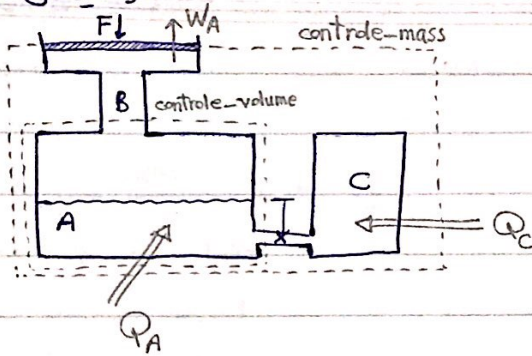 F
W_A
controle-mass
B
controle-volume
C
A
Q_C
Q_A